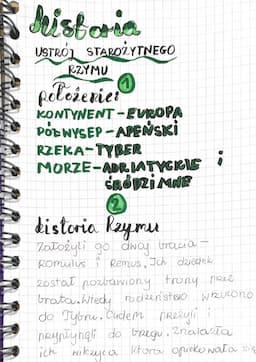 historia
USTRÓJ STAROŻYTNEGO
RZYMU
1
położenie:
KONTYNENT-EUROPA
PÓŁWYSEP-APEŃSKI
RZEKA-TYBER
MORZE-ADRIATYCKIE i
ŚRÓDZIMNE
2
historia Rzymu
Założyli go dwaj bracia-
Romulus i Remus. Ich dziadek
został pozbawiony tronu przez
brata. Wtedy rodzeństwo wrzucono
do Tybru. Cudem przeżyli i
przypłynęli do brzegu. Znalazła
ich wilczyca która opiekowała się